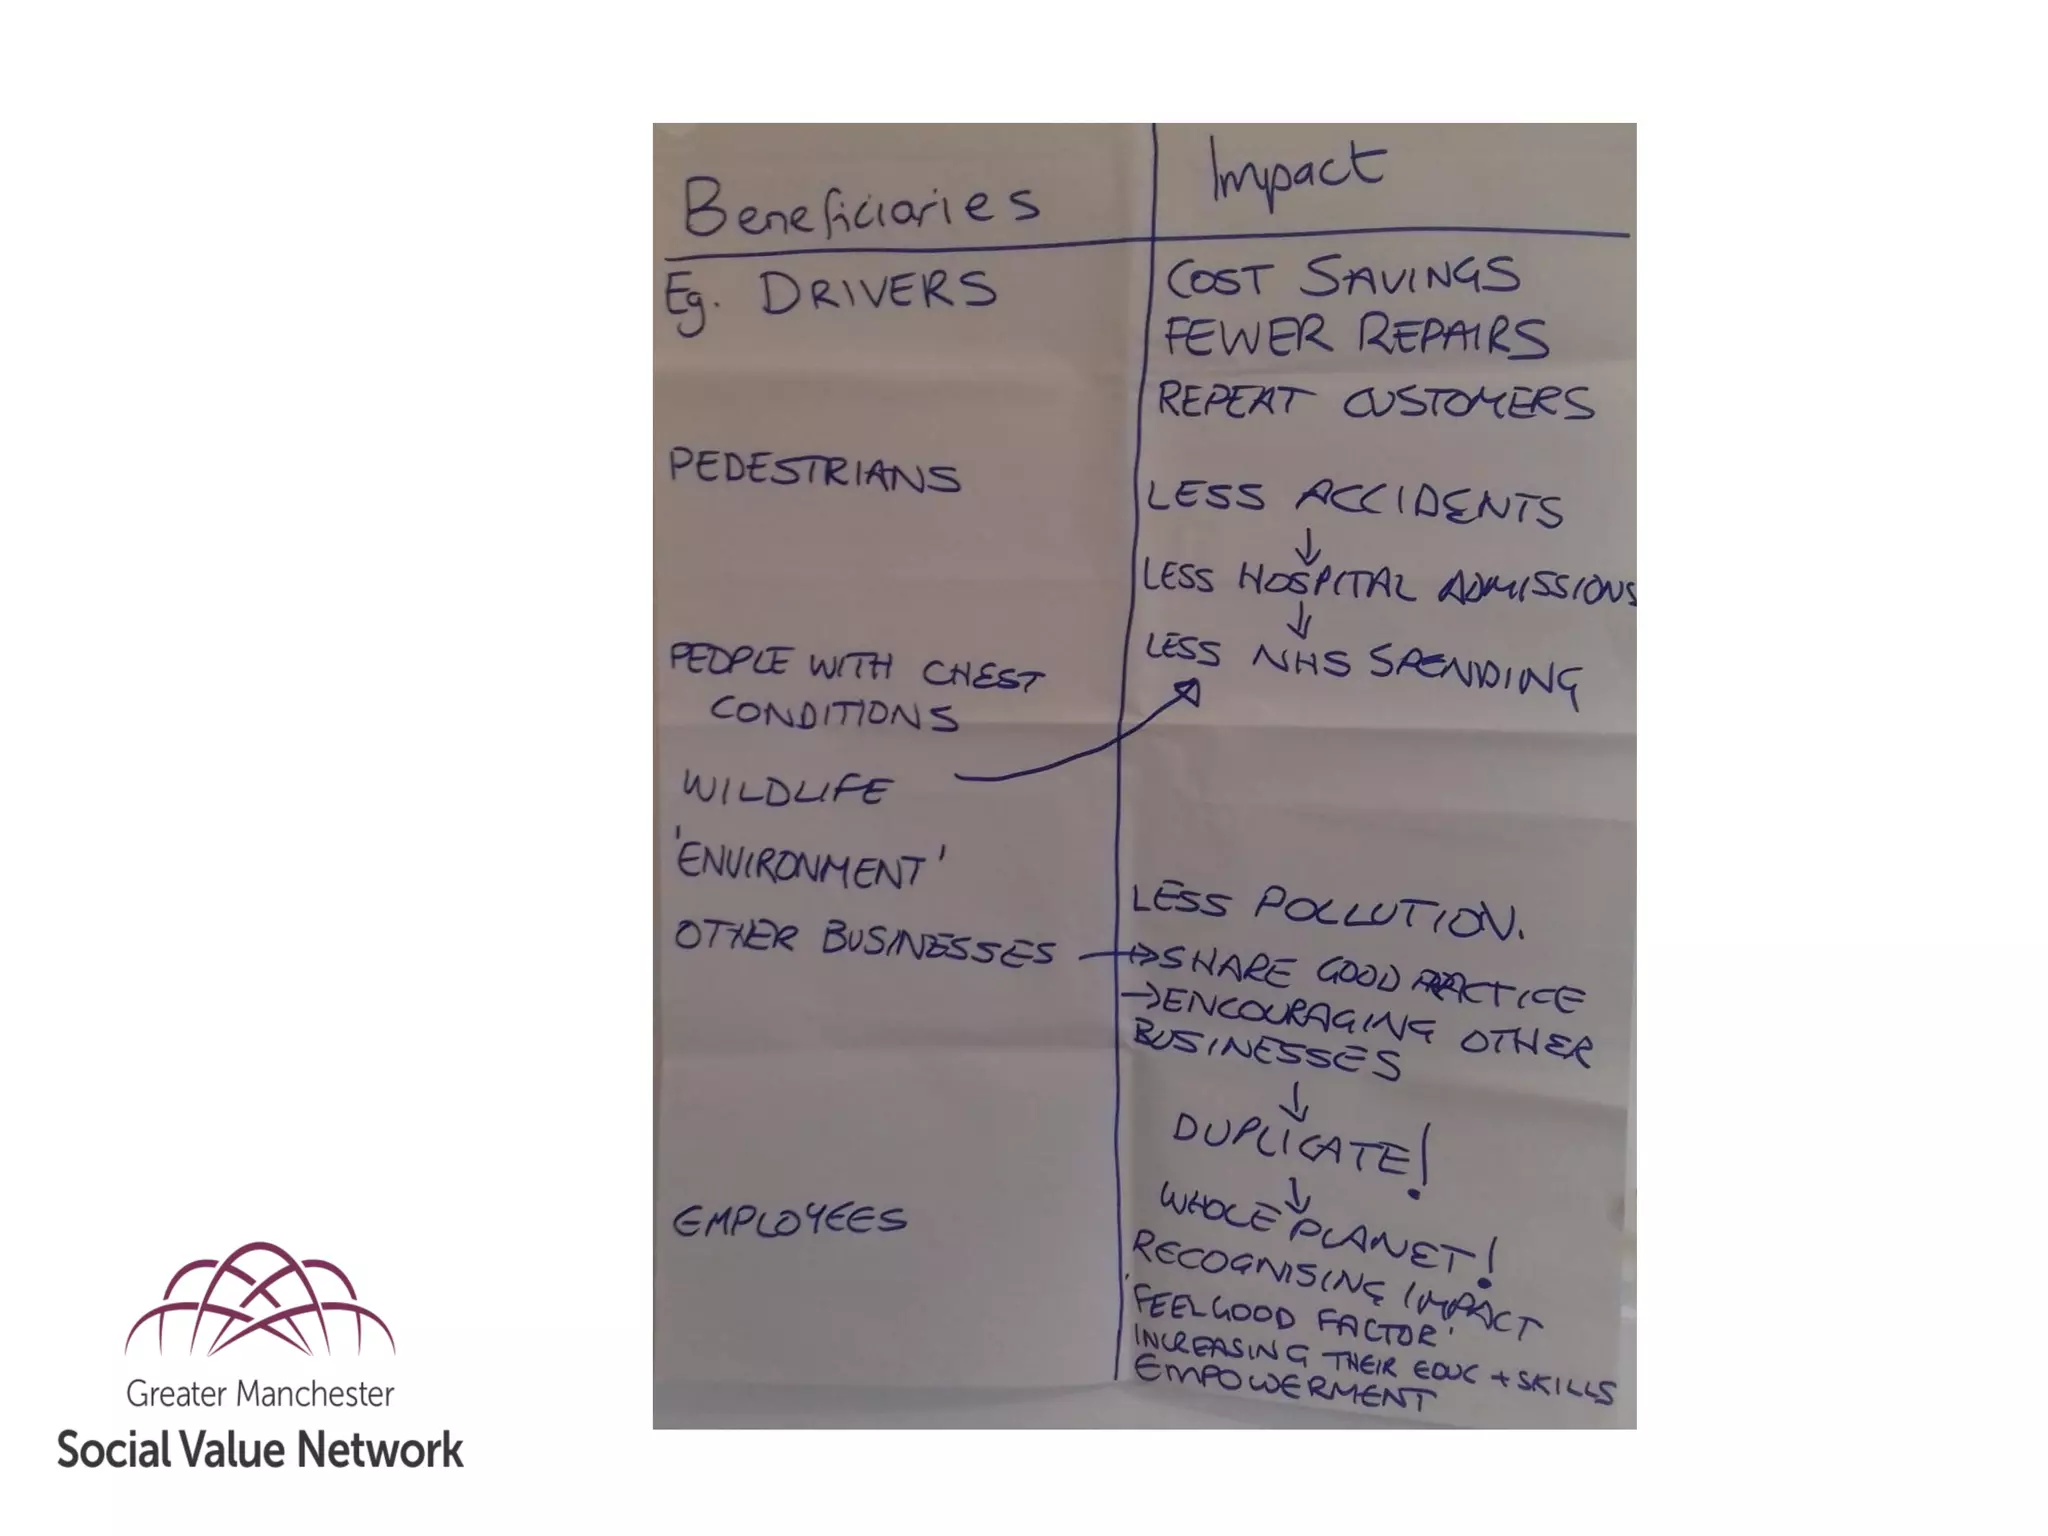 Beneficiaries
Impact
Eg. DRIVERS
COST SAVINGS
FEWER REPAIRS
REPEAT CUSTOMERS
PEDESTRIANS
LESS ACCIDENTS
↓
LESS HOSPITAL ADMISSIONS
↓
LESS NHS SPENDING
PEOPLE WITH CHEST
CONDITIONS
WILDLIFE
'ENVIRONMENT'
LESS POLLUTION.
OTHER BUSINESSES
→ SHARE GOOD PRACTICE
→ ENCOURAGING OTHER
BUSINESSES
↓
DUPLICATE!
↓
WHOLE PLANET!
EMPLOYEES
RECOGNISING IMPACT
'FEELGOOD FACTOR'
INCREASING THEIR EDUC + SKILLS
EMPOWERMENT
Greater Manchester
Social Value Network